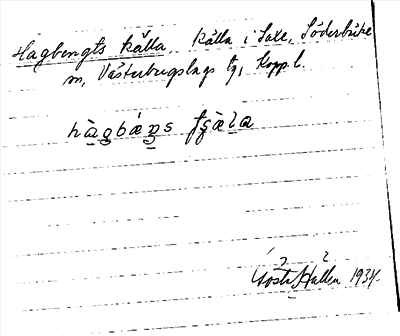 Hagbengts källa. Källa i Saxe, Söderbärke
sn, Västerbergslags tg, Kopp.l.
hàgbǽŋs fşàla
Gösta Hallen 1934.